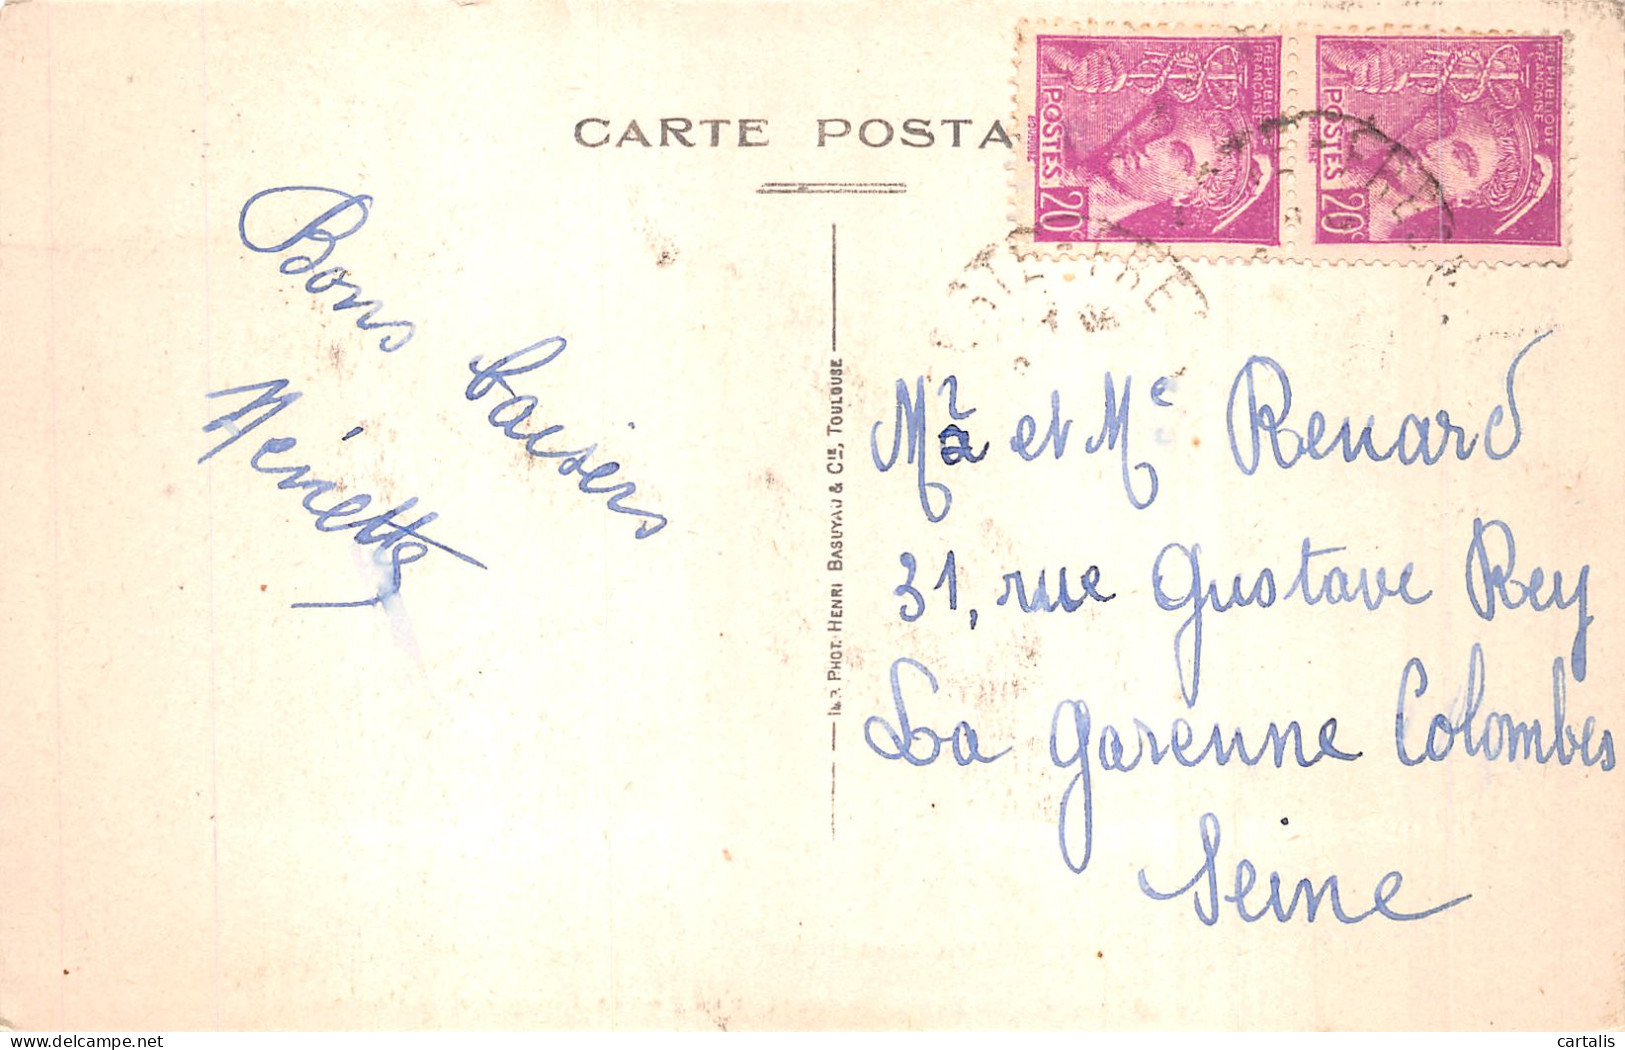 CARTE POSTA
RÉPUBLIQUE
FRANÇAISE
POSTES
20c
RÉPUBLIQUE
FRANÇAISE
POSTES
20c
Bons baisers
Nénette
IMP. PHOT. HENRI BASUYAU & CIE, TOULOUSE
Mr et Me Renard
31, rue Gustave Rey
La Garenne Colombes
Seine
delcampe.net
cartalis